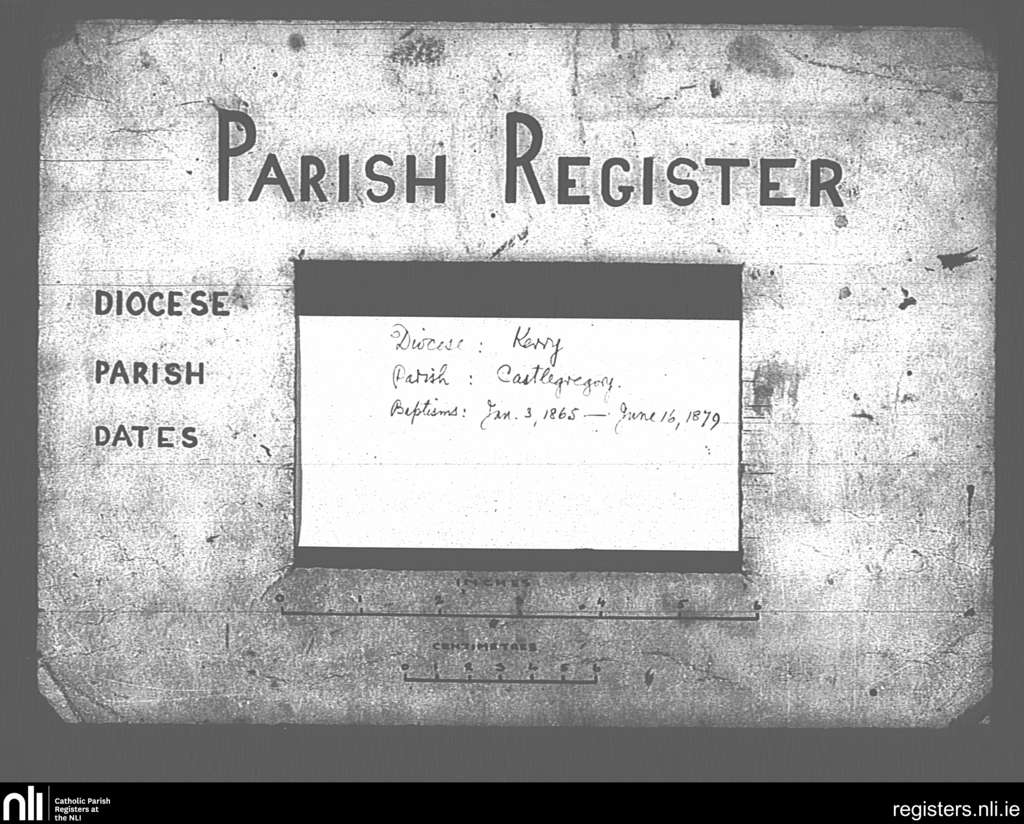 PARISH REGISTER
DIOCESE
PARISH
DATES
Diocese : Kerry
Parish : Castlegregory.
Baptisms: Jan. 3, 1865 — June 16, 1879
INCHES
0 1 2 3 4 5 6
CENTIMETRES
0 1 2 3 4 5 6
nli
Catholic Parish
Registers at
the NLI
registers.nli.ie